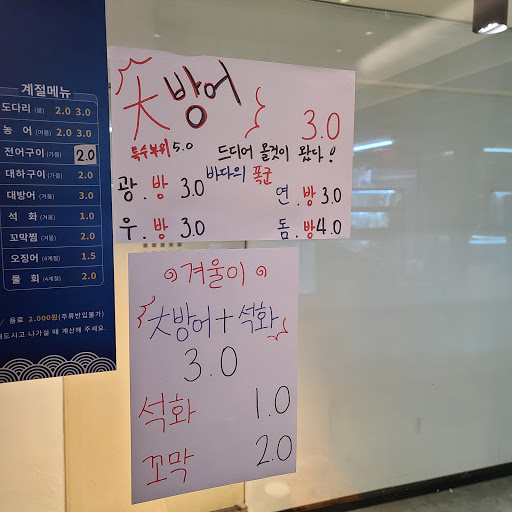 계절메뉴
도다리 (봄) 2.0 3.0
농 어 (여름) 2.0 3.0
전어구이 (가을) 2.0
대하구이 (가을) 2.0
대방어 (겨울) 3.0
석 화 (겨울) 1.0
꼬막찜 (겨울) 2.0
오징어 (4계절) 1.5
물 회 (4계절) 2.0
음료 2.000원(주류반입불가)
드시고 나가실 때 계산해 주세요.
大방어 3.0
특수부위 5.0 드디어 올것이 왔다!
바다의 폭군
광.방 3.0 연.방 3.0
우.방 3.0 돔.방 4.0
겨울이
大방어+석화
3.0
석화 1.0
꼬막 2.0